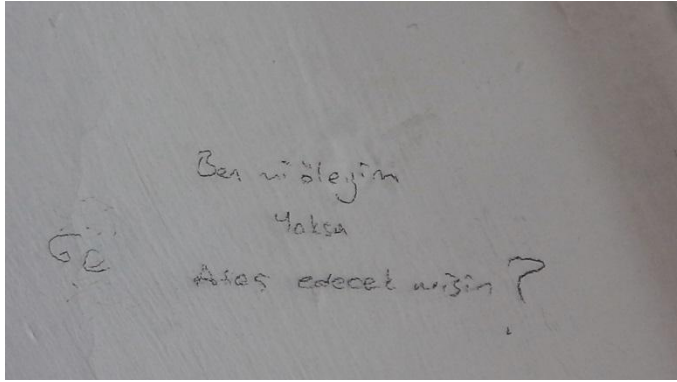 Ben mi öleyim
Yoksa
edecek misin?